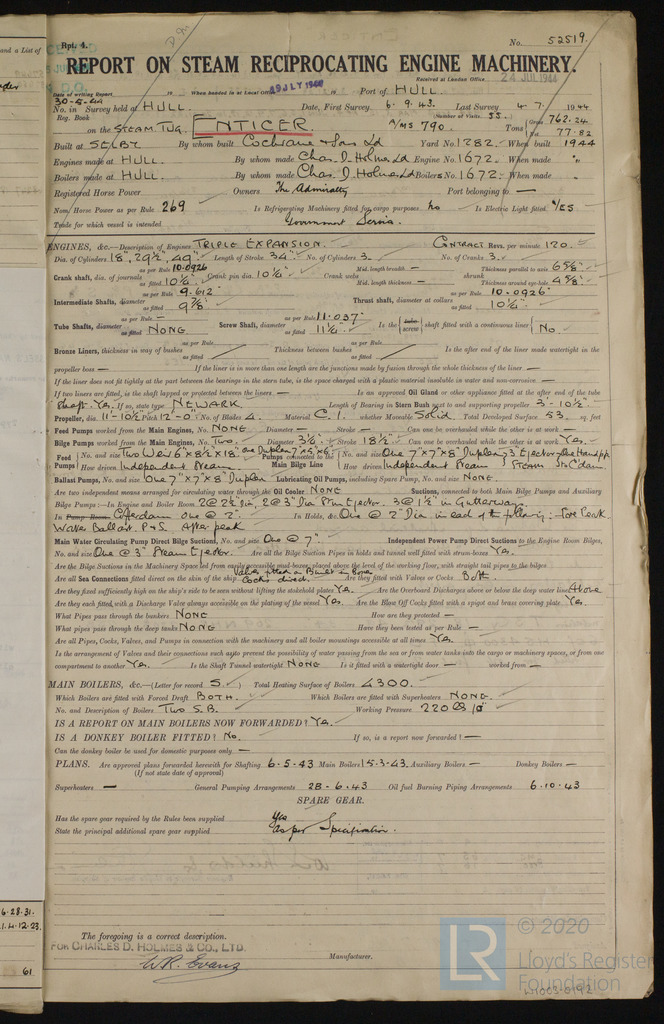 Rpt. 4.
No. 52519.
REPORT ON STEAM RECIPROCATING ENGINE MACHINERY.
Received at London Office 24 JUL 1944
Date of writing Report 30-5-44 19 When handed in at Local Office 19 JLY 1944 Port of HULL.
No. in Survey held at HULL. Date, First Survey 6. 9. 43. Last Survey 4. 7. 1944
Reg. Book Number of Visits 55.
on the STEAM TUG. ENTICER. A/MS 790. Tons Gross 762.24 77.82
Built at SELBY By whom built Cochrane & Sons Ld Yard No. 1282. When built 1944
Engines made at HULL. By whom made Chas. D. Holmes Ld Engine No. 1672. When made "
Boilers made at HULL. By whom made Chas. D. Holmes Ld Boilers No. 1672. When made "
Registered Horse Power Owners The Admiralty Port belonging to —
Nom. Horse Power as per Rule 269 Is Refrigerating Machinery fitted for cargo purposes No Is Electric Light fitted YES
Trade for which vessel is intended Government Service.
ENGINES, &c.—Description of Engines TRIPLE EXPANSION. CONTRACT Revs. per minute 120.
Dia. of Cylinders 18", 29½", 49" Length of Stroke 34" No. of Cylinders 3. No. of Cranks 3.
Crank shaft, dia. of journals as per Rule 10.0926 as fitted 10⅛" Crank pin dia. 10⅛" Crank webs Mid. length breadth — Mid. length thickness — shrunk Thickness parallel to axis 6⅝" Thickness around eye-hole 4⅝"
Intermediate Shafts, diameter as per Rule 9.612" as fitted 9⅞" Thrust shaft, diameter at collars as per Rule 10.0926" as fitted 10⅛"
Tube Shafts, diameter as per Rule — as fitted NONE Screw Shaft, diameter as per Rule 11.037" as fitted 11⅛" Is the tube screw shaft fitted with a continuous liner No.
Bronze Liners, thickness in way of bushes as per Rule as fitted Thickness between bushes as per Rule as fitted Is the after end of the liner made watertight in the
propeller boss — If the liner is in more than one length are the junctions made by fusion through the whole thickness of the liner —
If the liner does not fit tightly at the part between the bearings in the stern tube, is the space charged with a plastic material insoluble in water and non-corrosive —
If two liners are fitted, is the shaft lapped or protected between the liners — Is an approved Oil Gland or other appliance fitted at the after end of the tube
shaft Yes. If so, state type NEWARK Length of Bearing in Stern Bush next to and supporting propeller 3'-10½"
Propeller, dia. 11'-10½" Pitch 12'-0" No. of Blades 4. Material C. I. whether Moveable Solid. Total Developed Surface 53. sq. feet
Feed Pumps worked from the Main Engines, No. NONE Diameter — Stroke — Can one be overhauled while the other is at work —
Bilge Pumps worked from the Main Engines, No. TWO. Diameter 3½" Stroke 18½" Can one be overhauled while the other is at work Yes.
Feed Pumps No. and size Two Weirs 6"x8½"x18" one Duplex 7"x5"x6" How driven Independent Steam. Pumps connected to the Main Bilge Line No. and size One 7"x7"x8" Duplex; 3 Ejectors; One Hand pp How driven Independent Steam
Ballast Pumps, No. and size One 7"x7"x8" Duplex Lubricating Oil Pumps, including Spare Pump, No. and size NONE.
Are two independent means arranged for circulating water through the Oil Cooler NONE Suctions, connected to both Main Bilge Pumps and Auxiliary
Bilge Pumps:—In Engine and Boiler Room 2 @ 2½" Dia, 2 @ 3" Dia Stm Ejector. 3 @ 1½ in Gutterway.
In Pump Room Cofferdam One @ 2" In Holds, &c. One @ 2" Dia in each of the following:- Fore Peak
Water Ballast. P & S. After peak
Main Water Circulating Pump Direct Bilge Suctions, No. and size One @ 7". Independent Power Pump Direct Suctions to the Engine Room Bilges,
No. and size One @ 3" Steam Ejector. Are all the Bilge Suction Pipes in holds and tunnel well fitted with strum-boxes Yes.
Are the Bilge Suctions in the Machinery Space led from easily accessible mud-boxes, placed above the level of the working floor, with straight tail pipes to the bilges
Are all Sea Connections fitted direct on the skin of the ship Valves fitted on Built in Boxes Cocks direct. Are they fitted with Valves or Cocks Both.
Are they fixed sufficiently high on the ship's side to be seen without lifting the stokehold plates Yes. Are the Overboard Discharges above or below the deep water line Above
Are they each fitted with a Discharge Valve always accessible on the plating of the vessel Yes. Are the Blow Off Cocks fitted with a spigot and brass covering plate Yes.
What Pipes pass through the bunkers NONE How are they protected —
What pipes pass through the deep tanks NONE Have they been tested as per Rule —
Are all Pipes, Cocks, Valves, and Pumps in connection with the machinery and all boiler mountings accessible at all times Yes.
Is the arrangement of Valves and their connections such as to prevent the possibility of water passing from the sea or from water tanks into the cargo or machinery spaces, or from one
compartment to another Yes. Is the Shaft Tunnel watertight NONE Is it fitted with a watertight door — worked from —
MAIN BOILERS, &c.—(Letter for record S.) Total Heating Surface of Boilers 4300.
Which Boilers are fitted with Forced Draft BOTH. Which Boilers are fitted with Superheaters NONE.
No. and Description of Boilers Two S.B. Working Pressure 220 lb
IS A REPORT ON MAIN BOILERS NOW FORWARDED? Yes.
IS A DONKEY BOILER FITTED? No. If so, is a report now forwarded? —
Can the donkey boiler be used for domestic purposes only —
PLANS. Are approved plans forwarded herewith for Shafting 6-5-43 Main Boilers 15-3-43. Auxiliary Boilers — Donkey Boilers —
(If not state date of approval)
Superheaters — General Pumping Arrangements 28-6-43 Oil fuel Burning Piping Arrangements 6.10.43
SPARE GEAR.
Has the spare gear required by the Rules been supplied Yes
State the principal additional spare gear supplied as per Specification.
The foregoing is a correct description.
FOR CHARLES D. HOLMES & CO., LTD.
W.R. Evans Manufacturer.
and a List of
6-28.31.
61
LR © 2020
Lloyd's Register
Foundation
W1003-0192